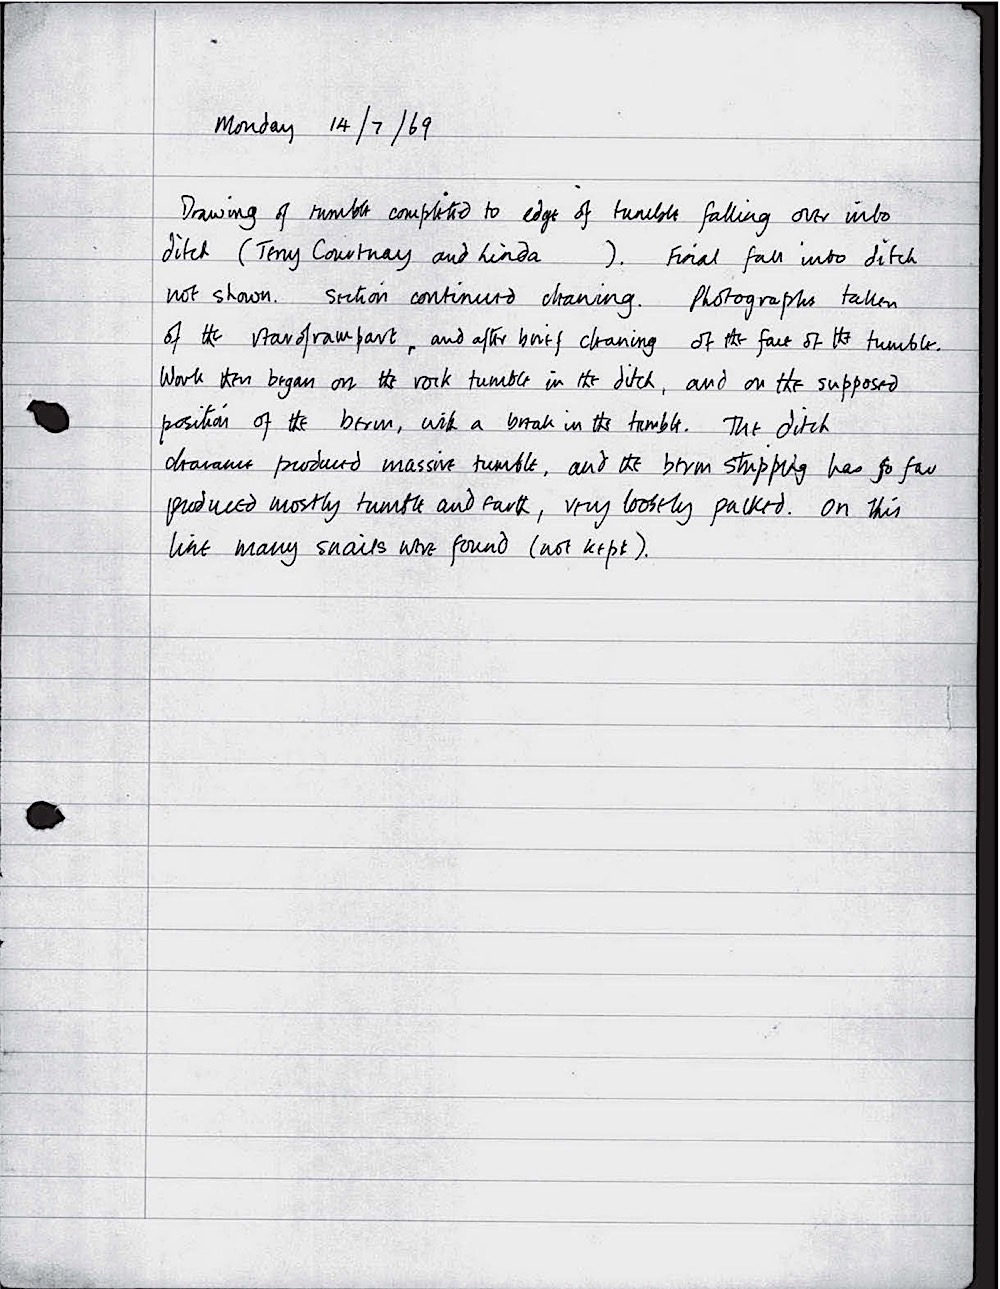 Monday 14/7/69
Drawing of tumble completed to edge of tumble falling over into
ditch (Terry Courtnay and Linda ). Final fall into ditch
not shown. Section continued cleaning. Photographs taken
of the rampart, and after brief cleaning of the face of the tumble.
Work then began on the rock tumble in the ditch, and on the supposed
position of the berm, with a break in the tumble. The ditch
clearance produced massive tumble, and the berm stripping has so far
produced mostly tumble and earth, very loosely packed. On this
line many snails were found (not kept).